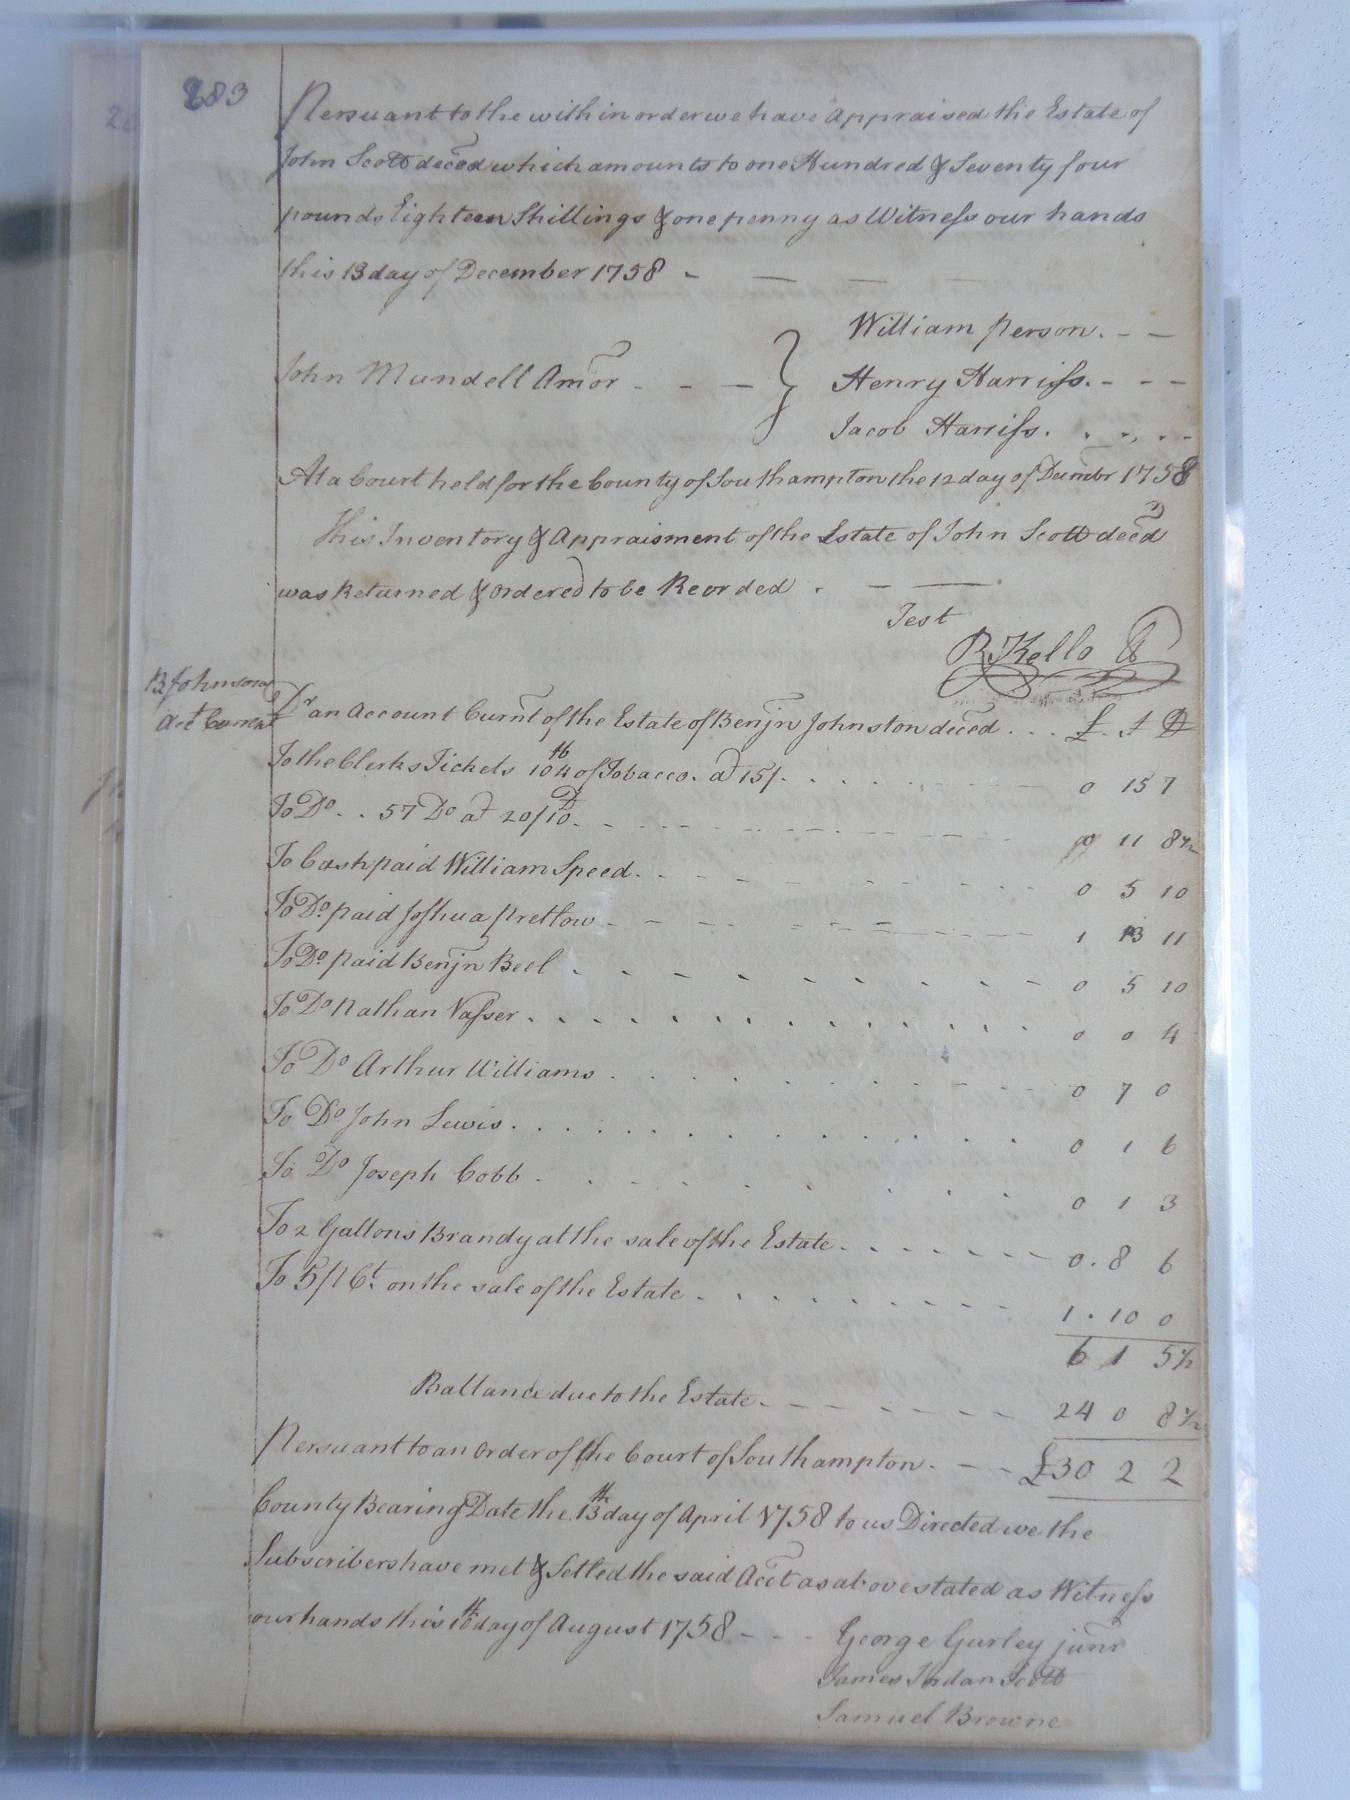 283
Persuant to the within order we have appraised the Estate of
John Scott deced which amounts to one Hundred & Seventy four
pounds Eighteen Shillings & one penny as Witness our hands
this 13 day of December 1758 -
William Person. - -
John Mundell Amor - - - } Henry Harriss. - - -
Jacob Harriss.
At a Court held for the County of Southampton the 12 day of Decembr 1758
This Inventory & Appraisment of the Estate of John Scott deced
was Returned & ordered to be Reorded
Test
R Kello
B Johnson
Act Current
Dr an Account Curnt of the Estate of Benjn Johnston deced . . . £ . s D
To the Clerks Tickets 104 lb of Tobacco. at 15/. 0 15 7
To Do. . 57 Do at 20/10. 0 11 8½
To Cash paid William Speed. 0 5 10
To Do. paid Joshua Pretlow 1 13 11
To Do. paid Benjn Beel 0 5 10
To Do Nathan Vasser 0 0 4
To Do Arthur Williams 0 7 0
To Do John Lewis 0 1 6
To Do Joseph Cobb 0 1 3
To 2 Gallons Brandy at the sale of the Estate 0 . 8 6
To 5 p Ct. on the sale of the Estate 1 . 10 0
6 1 5½
Ballance due to the Estate 24 0 8½
Persuant to an order of the Court of Southampton. - - £30 2 2
County Bearing Date the 13th day of April 1758 to us Directed we the
Subscribers have met & Setled the said Acct as above stated as Witness
our hands this 10th day of August 1758 - - - George Gurley junr
James Jordan Scott
Samuel Browne